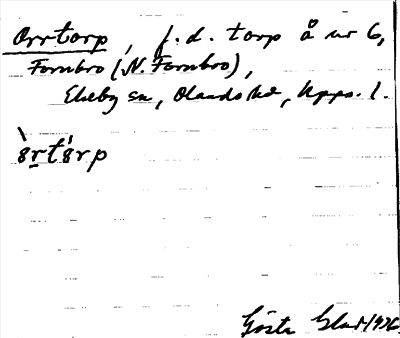 Orrtorp, f.d. torp å nr 6,
Fornbro (N. Fornbro),
Ekeby sn, Olands hd, Upps. l.
òrtórp
Gösta 1936